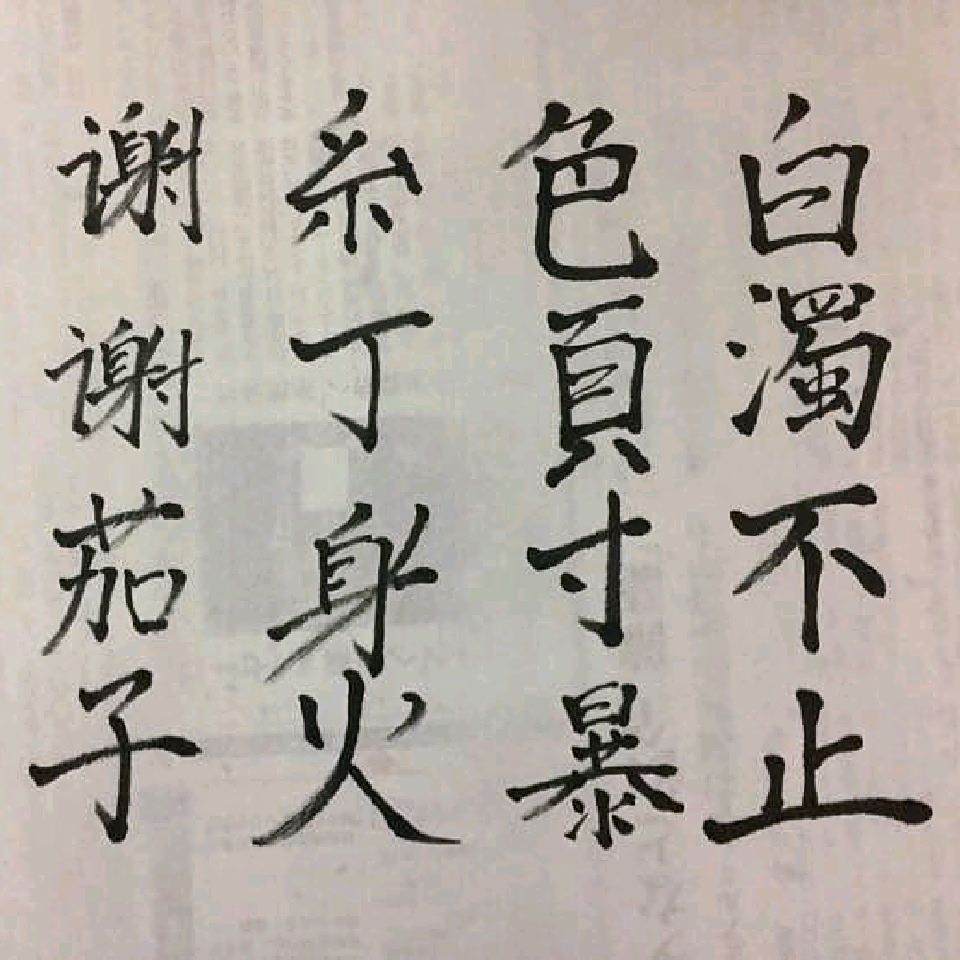 白濁不止
色頁寸暴
糸丁身火
谢谢茄子